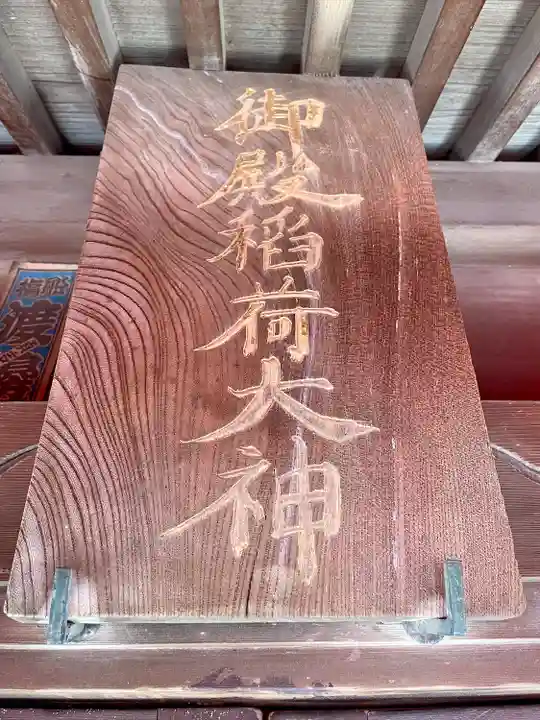 御殿稲荷大神